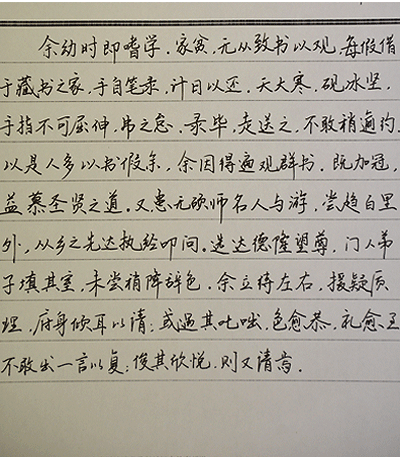 余幼时即嗜学。家贫，无从致书以观，每假借
于藏书之家，手自笔录，计日以还。天大寒，砚冰坚，
手指不可屈伸，弗之怠。录毕，走送之，不敢稍逾约。
以是人多以书假余，余因得遍观群书。既加冠，
益慕圣贤之道。又患无硕师名人与游，尝趋百里
外，从乡之先达执经叩问。先达德隆望尊，门人弟
子填其室，未尝稍降辞色。余立侍左右，援疑质
理，俯身倾耳以请；或遇其叱咄，色愈恭，礼愈至
不敢出一言以复；俟其欣悦，则又请焉。